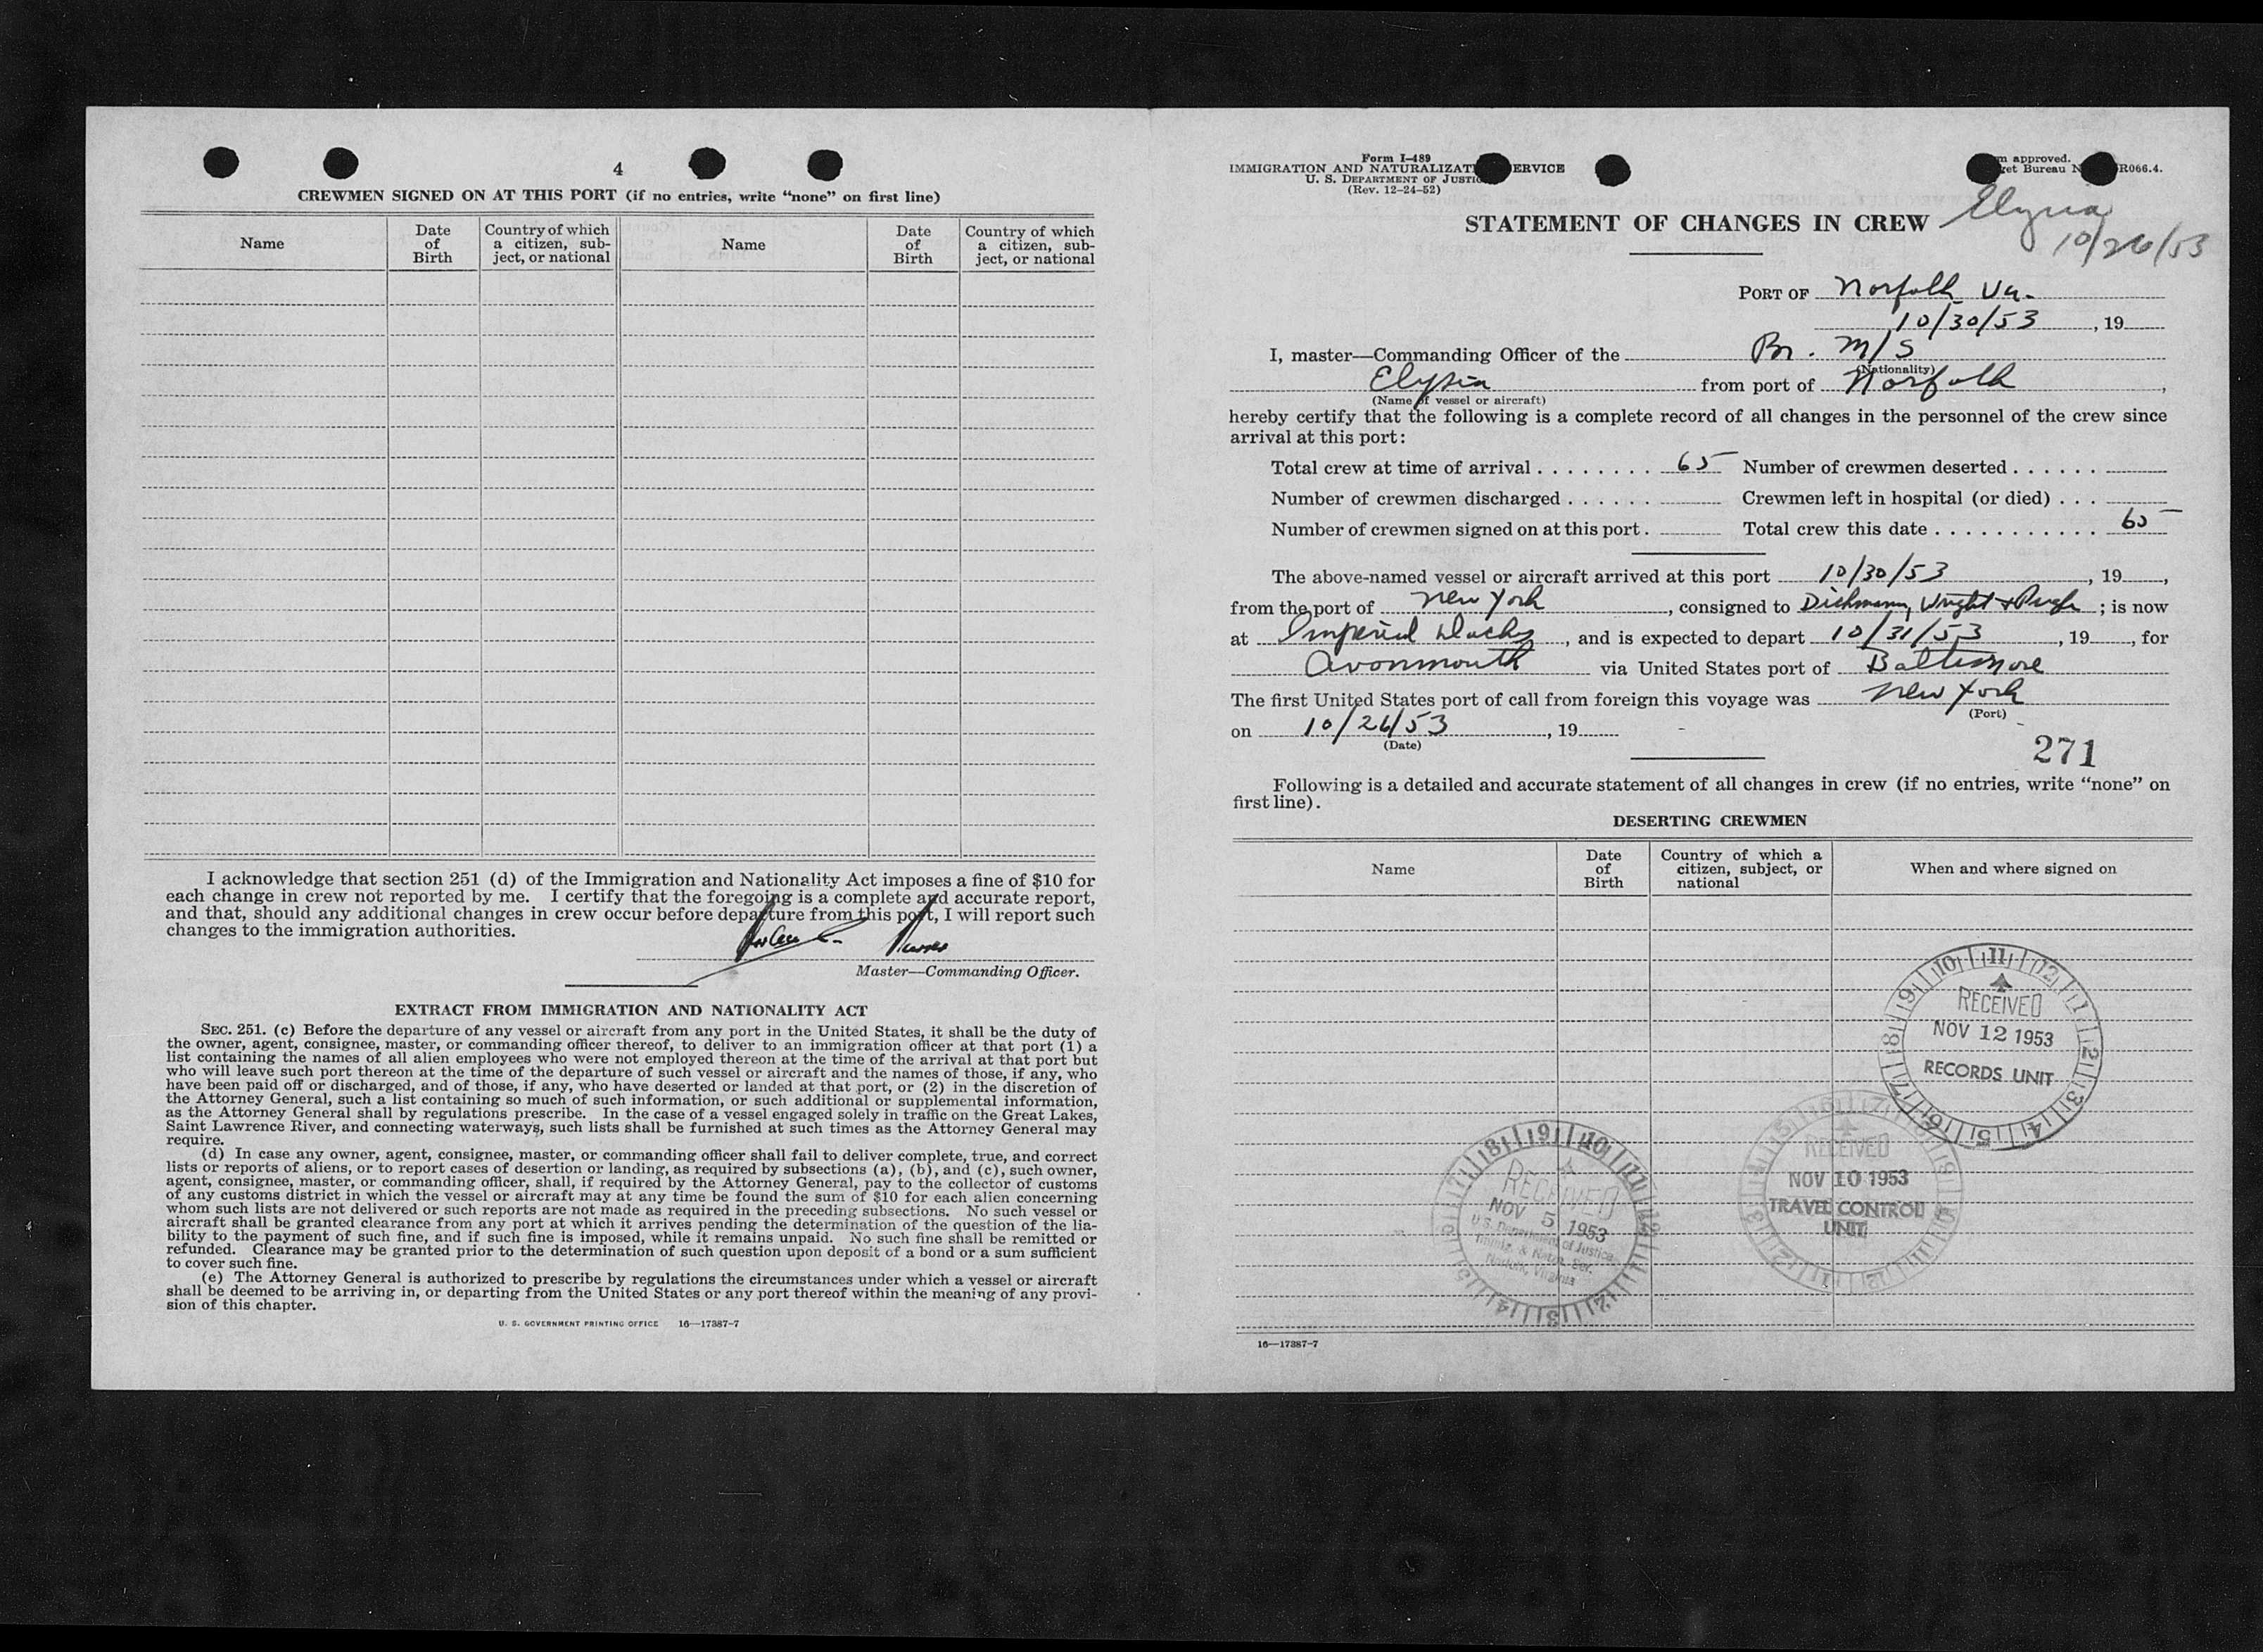 4
CREWMEN SIGNED ON AT THIS PORT (if no entries, write “none” on first line)
Name
Date of Birth
Country of which a citizen, subject, or national
Name
Date of Birth
Country of which a citizen, subject, or national
I acknowledge that section 251 (d) of the Immigration and Nationality Act imposes a fine of $10 for
each change in crew not reported by me. I certify that the foregoing is a complete and accurate report,
and that, should any additional changes in crew occur before departure from this port, I will report such
changes to the immigration authorities.
Master—Commanding Officer.
EXTRACT FROM IMMIGRATION AND NATIONALITY ACT
SEC. 251. (c) Before the departure of any vessel or aircraft from any port in the United States, it shall be the duty of
the owner, agent, consignee, master, or commanding officer thereof, to deliver to an immigration officer at that port (1) a
list containing the names of all alien employees who were not employed thereon at the time of the arrival at that port but
who will leave such port thereon at the time of the departure of such vessel or aircraft and the names of those, if any, who
have been paid off or discharged, and of those, if any, who have deserted or landed at that port, or (2) in the discretion of
the Attorney General, such a list containing so much of such information, or such additional or supplemental information,
as the Attorney General shall by regulations prescribe. In the case of a vessel engaged solely in traffic on the Great Lakes,
Saint Lawrence River, and connecting waterways, such lists shall be furnished at such times as the Attorney General may
require.
(d) In case any owner, agent, consignee, master, or commanding officer shall fail to deliver complete, true, and correct
lists or reports of aliens, or to report cases of desertion or landing, as required by subsections (a), (b), and (c), such owner,
agent, consignee, master, or commanding officer, shall, if required by the Attorney General, pay to the collector of customs
of any customs district in which the vessel or aircraft may at any time be found the sum of $10 for each alien concerning
whom such lists are not delivered or such reports are not made as required in the preceding subsections. No such vessel or
aircraft shall be granted clearance from any port at which it arrives pending the determination of the question of the lia-
bility to the payment of such fine, and if such fine is imposed, while it remains unpaid. No such fine shall be remitted or
refunded. Clearance may be granted prior to the determination of such question upon deposit of a bond or a sum sufficient
to cover such fine.
(e) The Attorney General is authorized to prescribe by regulations the circumstances under which a vessel or aircraft
shall be deemed to be arriving in, or departing from the United States or any port thereof within the meaning of any provi-
sion of this chapter.
U. S. GOVERNMENT PRINTING OFFICE 16—17387-7
Form I-489
IMMIGRATION AND NATURALIZAT ERVICE
U. S. DEPARTMENT OF JUSTIC
(Rev. 12-24-52)
m approved.
get Bureau N R066.4.
STATEMENT OF CHANGES IN CREW
10/26/53
PORT OF Norfolk Va.
10/30/53, 19
I, master—Commanding Officer of the Br. M/S
(Nationality)
Elysia from port of Norfolk,
(Name of vessel or aircraft)
hereby certify that the following is a complete record of all changes in the personnel of the crew since
arrival at this port:
Total crew at time of arrival 65 Number of crewmen deserted
Number of crewmen discharged Crewmen left in hospital (or died)
Number of crewmen signed on at this port. Total crew this date 65
The above-named vessel or aircraft arrived at this port 10/30/53, 19,
from the port of New York, consigned to Dichmann, Wright & Pugh; is now
at Imperial Docks, and is expected to depart 10/31/53, 19, for
Avonmouth via United States port of Baltimore
The first United States port of call from foreign this voyage was New York
(Port)
on 10/26/53, 19
(Date)
271
Following is a detailed and accurate statement of all changes in crew (if no entries, write “none” on
first line).
DESERTING CREWMEN
Name
Date of Birth
Country of which a citizen, subject, or national
When and where signed on
RECEIVED
NOV 12 1953
RECORDS UNIT
RECEIVED
NOV 10 1953
TRAVEL CONTROL
UNIT
RECEIVED
NOV 5 1953
U.S. Department of Justice
Immig. & Natzn. Ser.
Norfolk, Virginia
16—17387-7